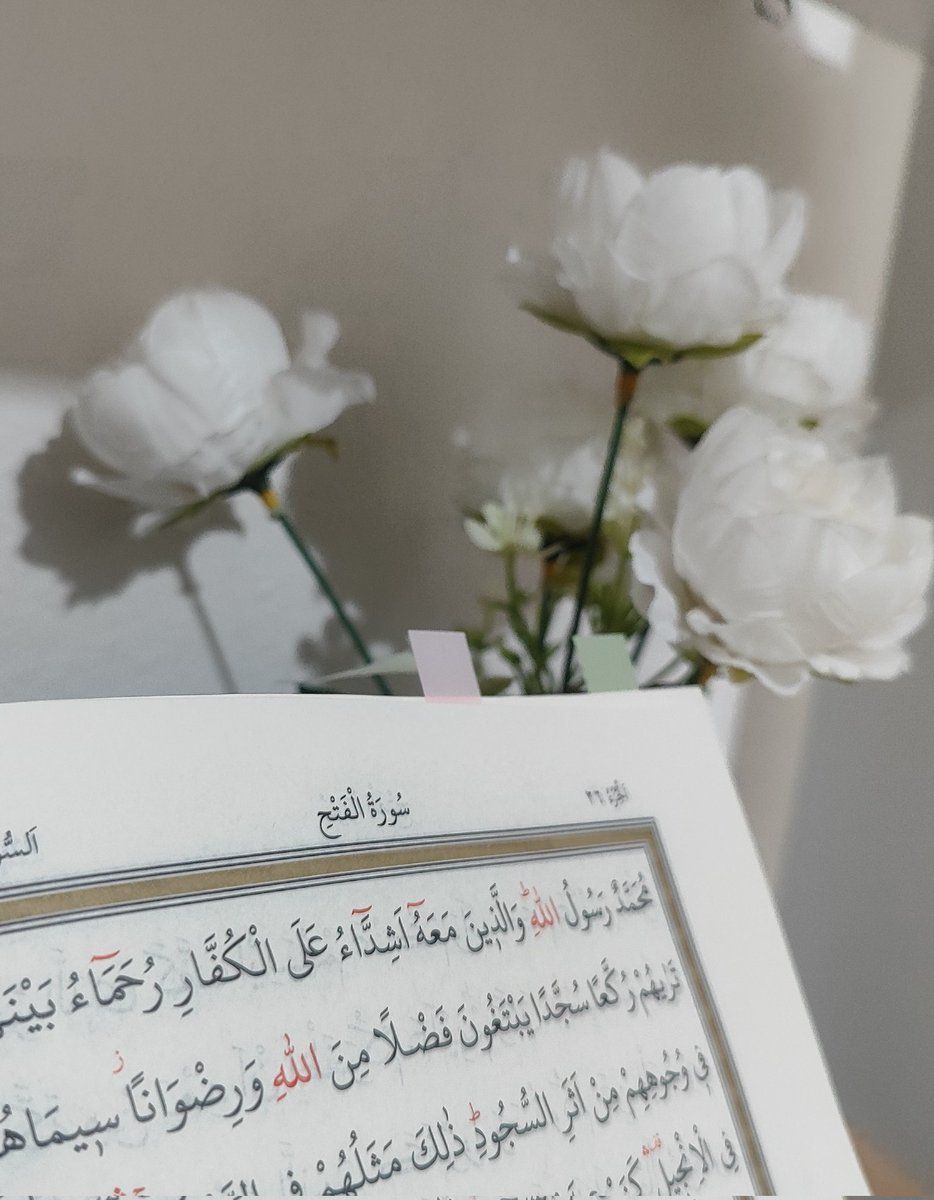 الجزء ٢٦
سُورَةُ الْفَتْحِ
مُحَمَّدٌ رَسُولُ اللّٰهِ وَالَّذٖينَ مَعَهُٓ اَشِدَّٓاءُ عَلَى الْكُفَّارِ رُحَمَٓاءُ
تَرٰيهُمْ رُكَّعًا سُجَّدًا يَبْتَغُونَ فَضْلًا مِنَ اللّٰهِ وَرِضْوَانًا
فٖي وُجُوهِهِمْ مِنْ اَثَرِ السُّجُودِ ذٰلِكَ مَثَلُهُمْ
فِي الْاِنْجٖيلِ